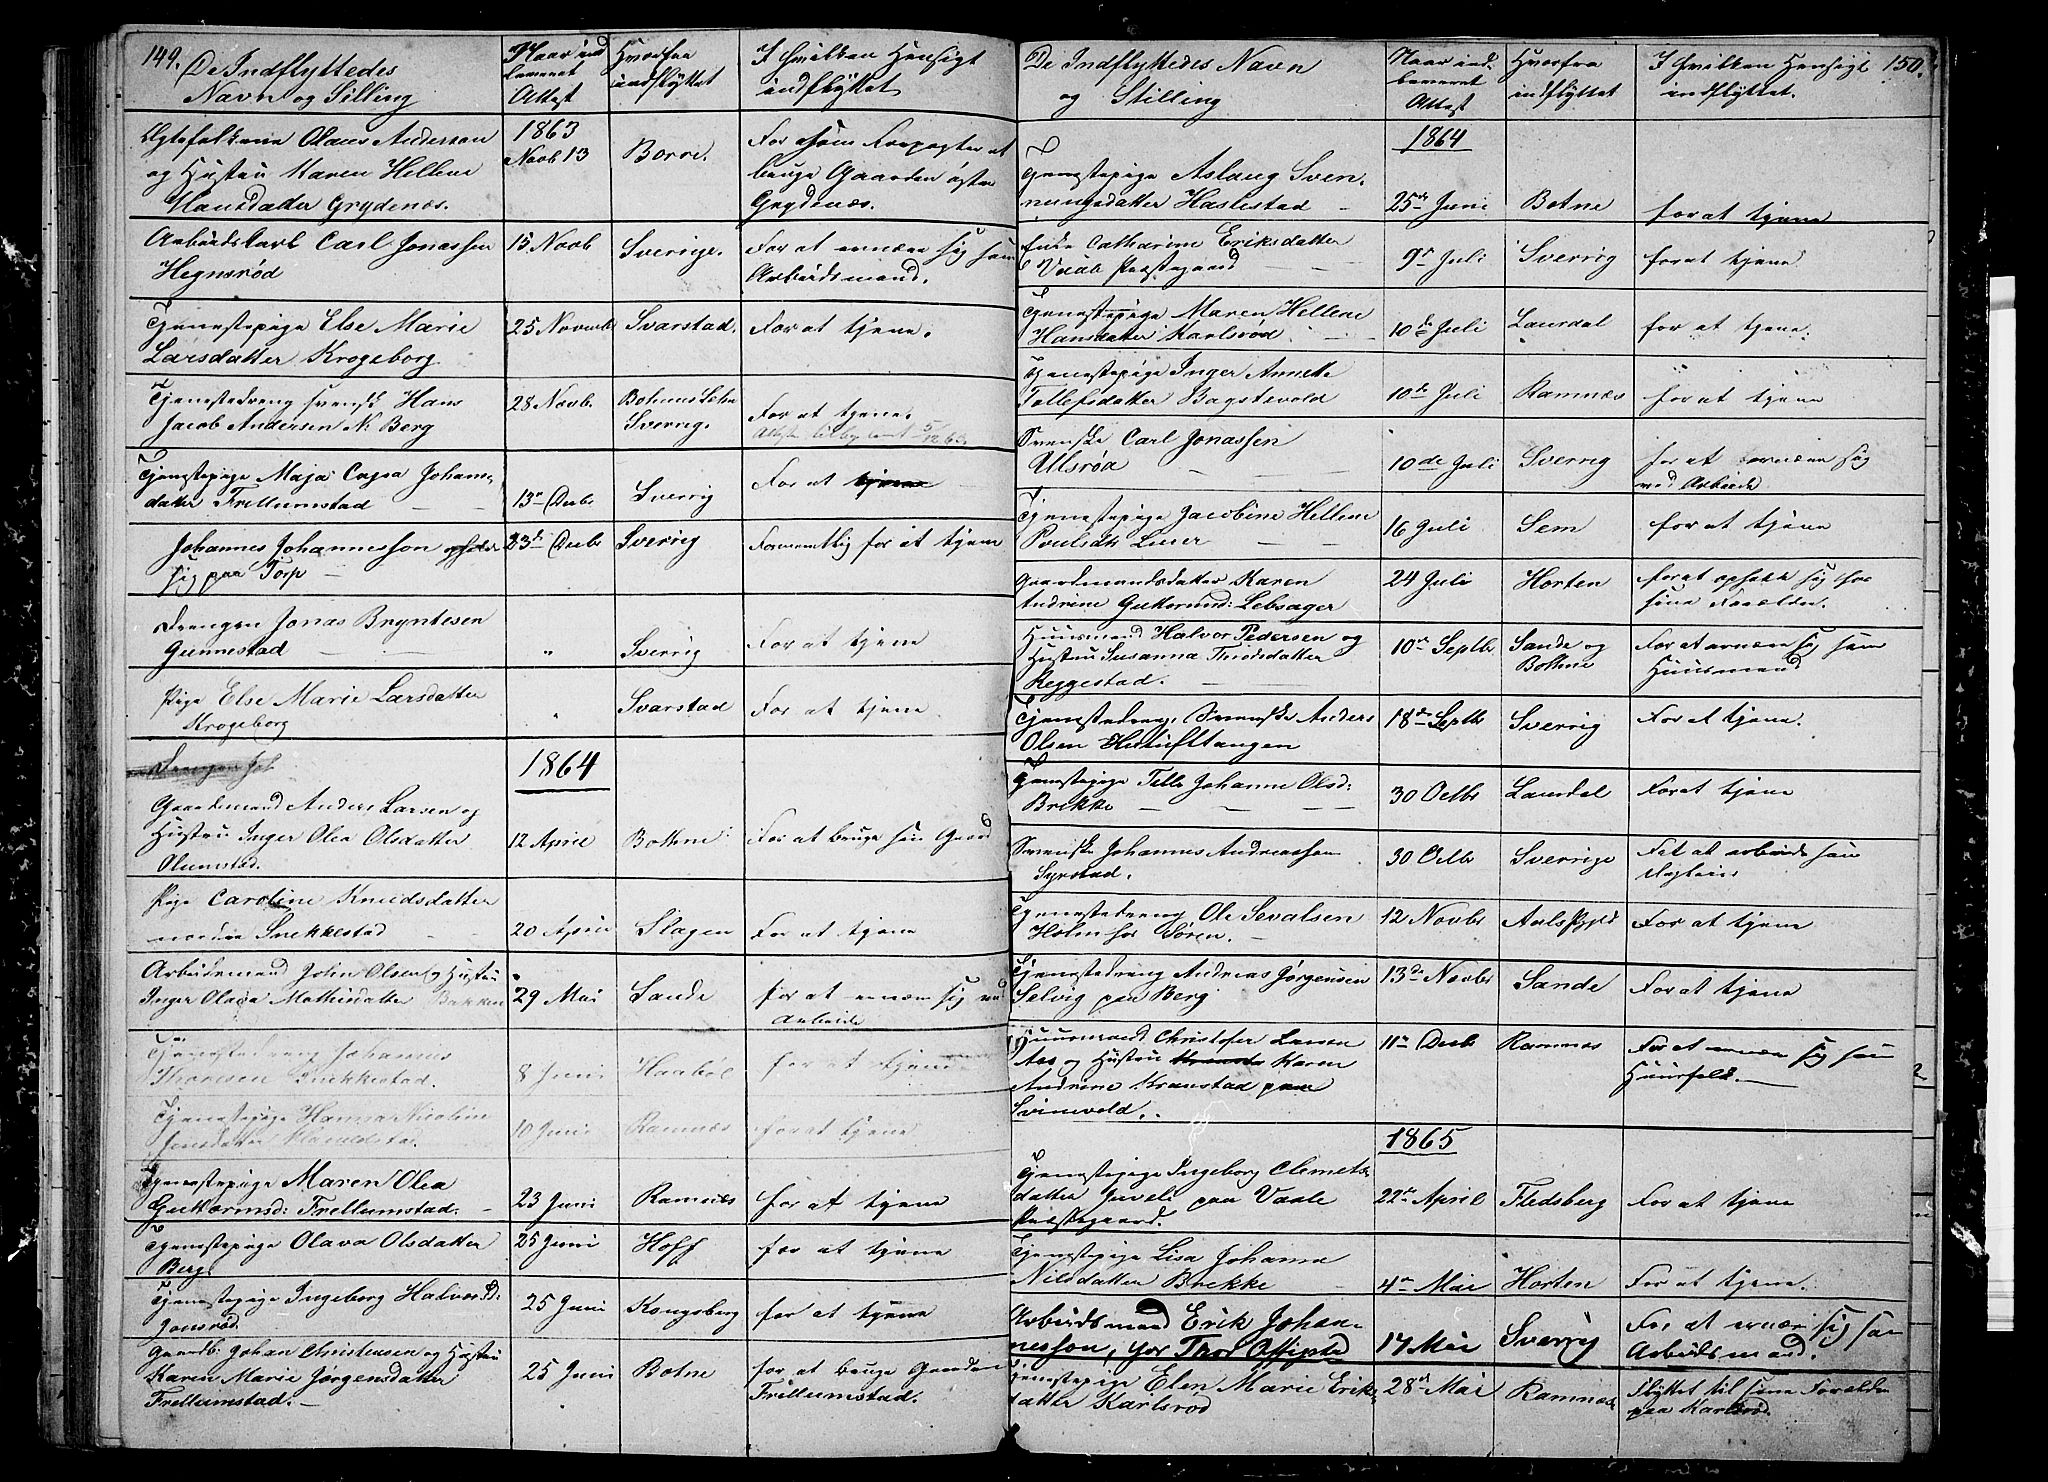 149.
De Indflyttedes
Navn og Stilling
Naar ind
leveret
Attest
Hvorfra
indflyttet
I hvilken Hensigt
indflyttet
Ægtefolkene Olaus Anderssen
og Hustru Karen Hellene
Hansdatter Grydenæs.
1863
Novb 13
Borre.
For som Forpagter at
bruge Gaarden østre
Grydenæs.
Arbeidskarl Carl Jonassen
Hegnsrød
15 Novb
Sverige.
For at ernære sig som
Arbeidsmand.
Tjenestepige Else Marie
Larsdatter Krogeborg
25 Novemb
Svarstad.
For at tjene.
Tjenestedreng svensk Hans
Jacob Andersen N: Berg
28 Novb.
Bohus Lehn
Sverrig.
For at tjene.
Tjenestepige Maja Cajsa Johans-
datter Trellumstad
13de Decbr
Sverrig
For at tjene
Johannes Johannesson opholder
sig paa Torp
23de Decbr
Sverrig
Formentlig for at tjene
Drengen Jonas Bryntesen
Gunnestad
"
Sverrig
For at tjene
Pige Else Marie Larsdatter
Krogeborg
"
Svarstad
For at tjene
Drengen Joh
1864
Gaardmand Anders Larsen og
Hustru Inger Olea Olsdatter
Olumstad.
12 April
Bothne
For at bruge sin Gaard
Pige Caroline Knudsdatter
nordre Snekkestad
20 April
Slagen
For at tjene
Arbeidsmand John Olsen og Hustru
Inger Olava Mathisdatter Bakken
29 Mai
Sande
for at ernære sig ved
Arbeide
Tjenestedreng Johannes
Thoresen Snekkestad.
8 Juni
Haabøl
for at tjene
Tjenestepige Hansa Nicoline
Jensdatter
10 Juni
Ramnæs
for at tjene
Tjenestepige Maren Olea
Guttormsd: Trellumstad.
23 Juni
Ramnæs
for at tjene
Tjenestepige Olava Olsdatter
Berg
25 Juni
Hoff
for at tjene
Tjenestepige Ingeborg Halvorsd:
Jonsrød.
25 Juni
Kongsberg
for at tjene
Gaardb: Johan Christensen og Hustru
Karen Marie Jørgensdatter
Trellumstad.
25 Juni
Botne
for at bruge Gaarden
Trellumstad.
De Indflyttedes Navn
og Stilling
Naar ind-
leveret
Attest
Hvorfra
indflyttet
I hvilken Hensigt
indflyttet.
150.
1864
Tjenestepige Aslaug Sven-
nungsdatter Haslestad
25de Juni
Botne
for at tjene
Enke Catharine Eriksdatter
Vaale Præstegaard
9de Juli
Sverrig
for at tjene
Tjenestepige Maren Hellene
Hansdatter Karlsrød
10de Juli
Laurdal
for at tjene.
Tjenestepige Inger Annette
Tollefsdatter Bagstevold
10de Juli
Ramnæs
for at tjene
Svenske Carl Jonassen
Ullsrød
10de Juli
Sverrig
for at ernære sig
ved Arbeide
Tjenestepige Jacobine Hellene
Poulsdtr Lurer
16 Juli
Sem
for at tjene
Gaardmandsdatter Karen
Andrine Guttormsd: Lebsager
24 Juli
Horten
for at opholde sig hos
sine Forældre.
Huusmand Halvor Pedersen og
Hustru Susanna Thordsdatter
Reggestad.
10de Septbr
Sande og
Bothne
For at ernære sig som
Huusmand
Tjenestedreng, Svenske Anders
Olsen Hetufttangen
18de Septbr
Sverrig
For at tjene.
Tjenestepige Tella Johanne Olsd:
Brekke
30 Octbr
Laurdal
For at tjene
Svenske Johannes Andreassen
Syrstad.
30 Octbr
Sverrige
For at arbeide som
Tjenestedreng Ole Sevalsen
Holm hos Søren.
12 Novbr
For at tjene
Tjenestedreng Andreas Jørgensen
Selvig paa Berg
13de Novbr
Sande
For at tjene
Huusmand Christofer Larsen
Aas og Hustru Karen
Andrine Kranstad paa
Svinevold.
11te Decb
Ramnæs
For at ernære sig som
Huusfolk.
1865
Tjenestepige Ingeborg Clemets-
datter paa Vaale
Præstegaard.
22de April
Fledsberg
For at tjene
Tjenestepige Lisa Johanna
Nilsdatter Brekke
4de Mai
Horten
For at tjene.
Arbeidsmand Erik Johan-
nesson,
17 Mai
Sverrig
For at ernære sig som
Arbeidsmand.
Tjenestepige Elen Marie Erik-
datter Karlsrød
28de Mai
Ramnæs
Flyttet til sine Forældre
paa Karlsrød.